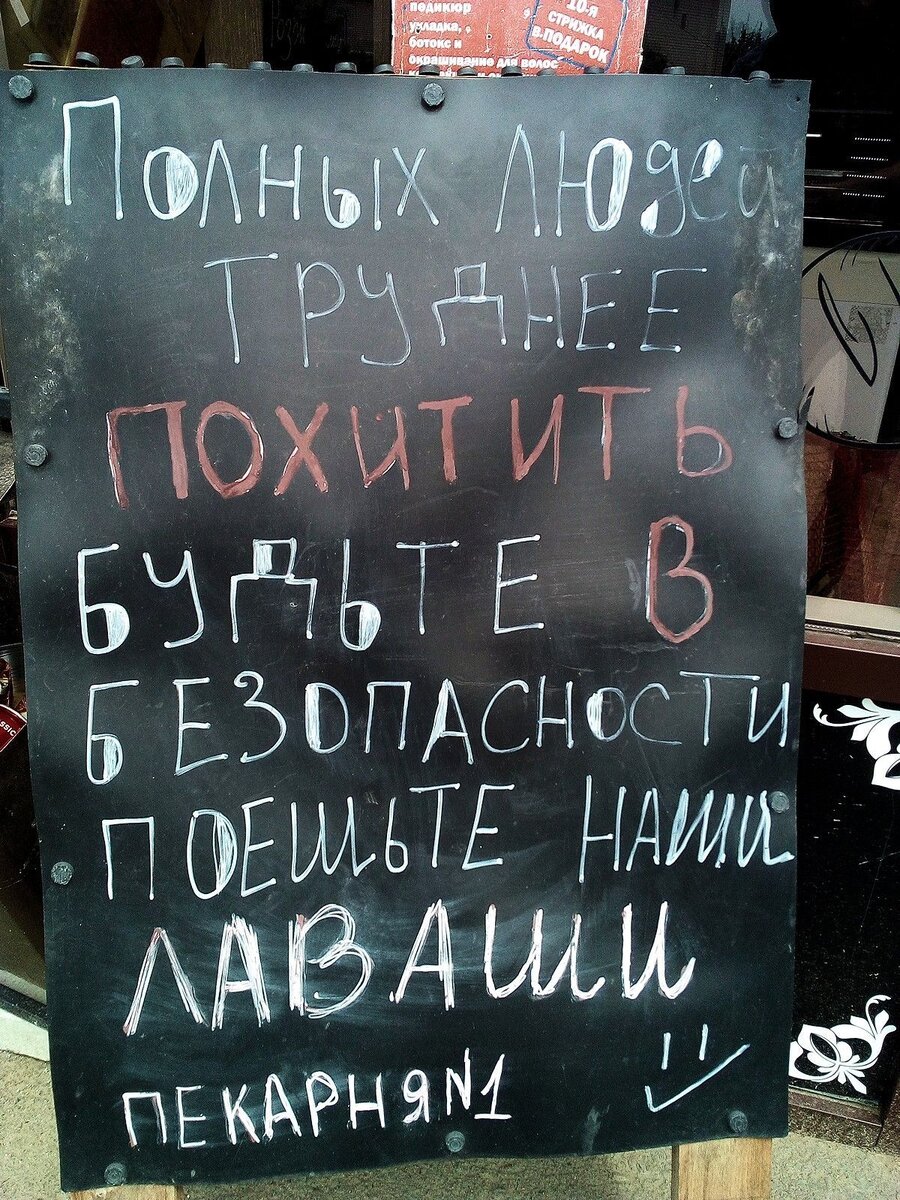 педикюр
укладка,
ботокс и
окрашивание для волос
10-я
СТРИЖКА
в ПОДАРОК
Полных людей
труднее
похитить
будьте в
безопасности
поешьте наши
лаваши
пекарня N1